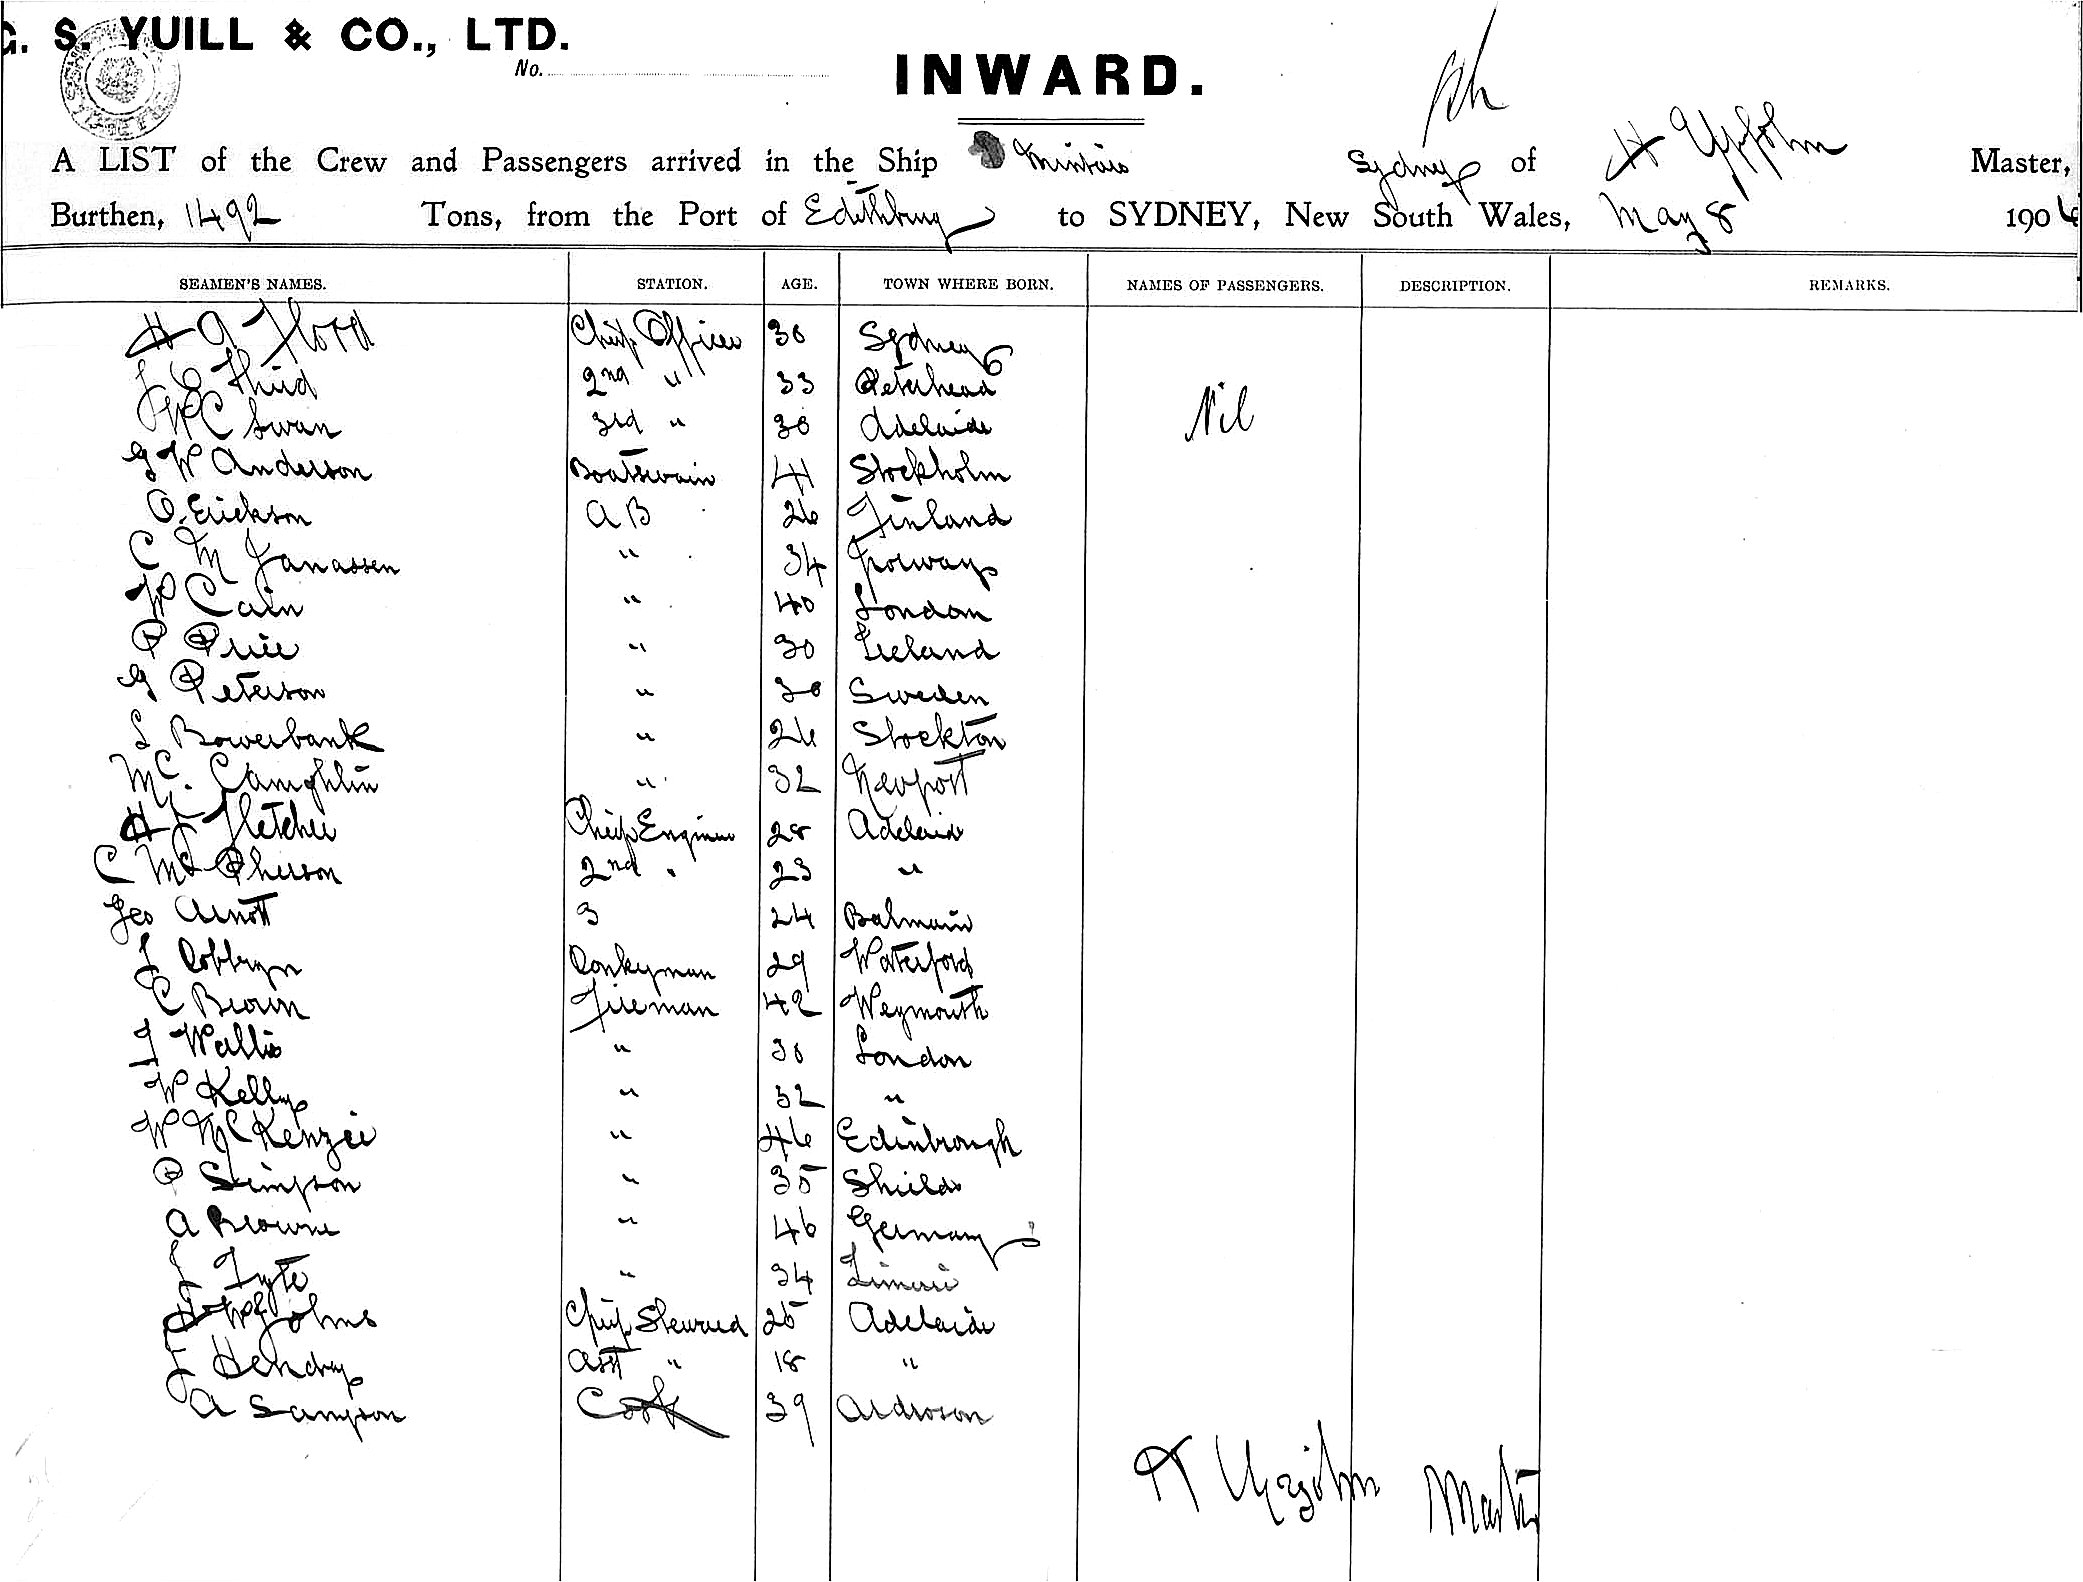 G. S. YUILL & CO., LTD.
No.
INWARD.
A LIST of the Crew and Passengers arrived in the Ship Sydney of H Upjohn Master,
Burthen, 1492 Tons, from the Port of Edithburg to SYDNEY, New South Wales, May 8 1904
SEAMEN'S NAMES. STATION. AGE. TOWN WHERE BORN. NAMES OF PASSENGERS. DESCRIPTION. REMARKS.
H A Flood Chief Officer 30 Sydney
J C Third 2nd " 33 Peterhead Nil
W C Swan 3rd " 30 Adelaide
G W Anderson Boatswain 41 Stockholm
O. Erickson A B 26 Finland
C M Janassen " 34 Norway
W Cain " 40 London
P Price " 30 Ireland
G Peterson " 30 Sweden
S Bowerbank " 26 Stockton
Mc. Camghlin " 32 Newport
H J Fletcher Chief Engineer 28 Adelaide
C McPherson 2nd " 23 "
Geo Arnott 3 24 Balmain
J Donkyman 29 Waterford
C Brown Fireman 42 Weymouth
J Wallis " 30 London
W Kelly " 32 "
W McKenzie " 46 Edinbrough
P Simpson " 35 Shields
A Browne " 46 Germany
J Tyte " 34
H W Johns Chief Steward 25 Adelaide
J Hendry Asst " 18 "
A Sampson Cook 39 Ardroson
H Upjohn Master